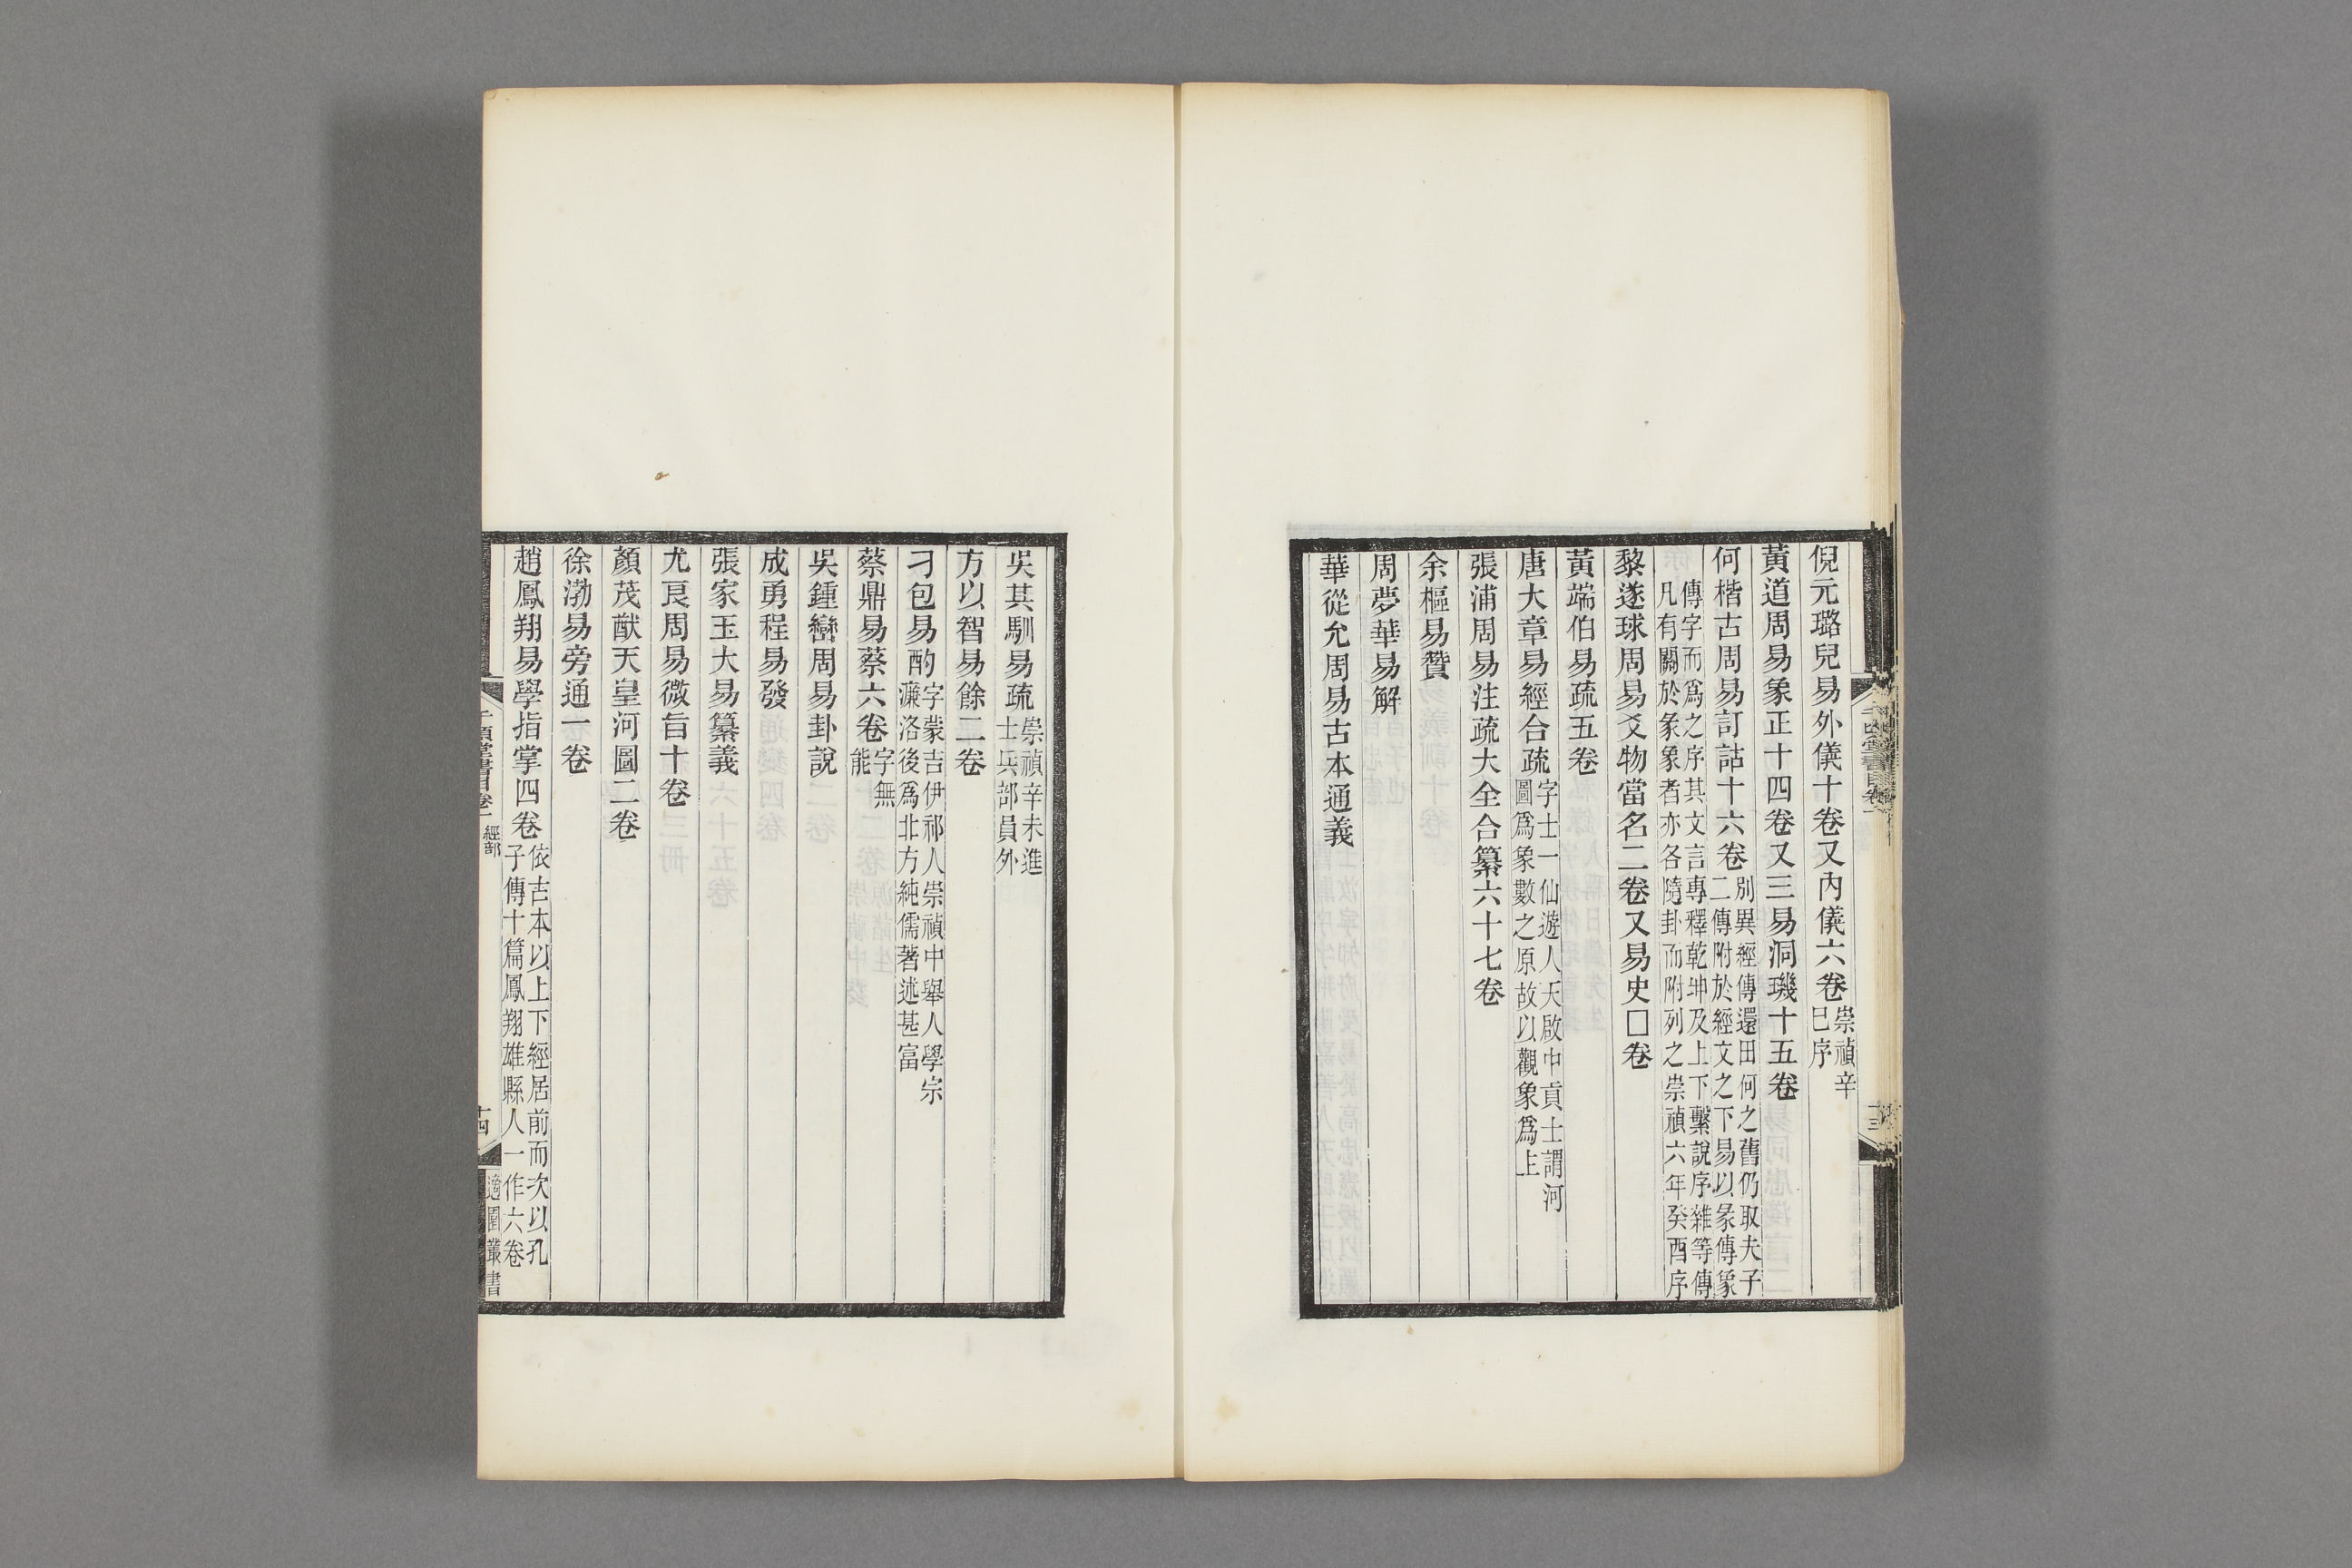 倪元璐兒易外儀十卷又內儀六卷崇禎辛巳序
黃道周易象正十四卷又三易洞璣十五卷
何楷古周易訂詁十六卷別異經傳還田何之舊仍取夫子二傳附於經文之下易以彖傳象
傳字而爲之序其文言專釋乾坤及上下繫說序雜等傳凡有關於彖象者亦各隨卦而附列之崇禎六年癸酉序
黎遂球周易爻物當名二卷又易史□卷
黃端伯易疏五卷
唐大章易經合疏字士一仙遊人天啟中貢士謂河圖爲象數之原故以觀象爲上
張浦周易注疏大全合纂六十七卷
余樞易贊
周夢華易解
華從允周易古本通義
吳其馴易疏崇禎辛未進士兵部員外
方以智易餘二卷
刁包易酌字蒙吉伊祁人崇禎中舉人學宗濂洛後爲北方純儒著述甚富
蔡鼎易蔡六卷字無能
吳鍾巒周易卦說
成勇程易發
張家玉大易纂義
尤良周易微旨十卷
顏茂猷天皇河圖二卷
徐渤易旁通一卷
趙鳳翔易學指掌四卷依古本以上下經居前而次以孔子傳十篇鳳翔雄縣人一作六卷
千頃堂書目卷一 經部 十四 適園叢書